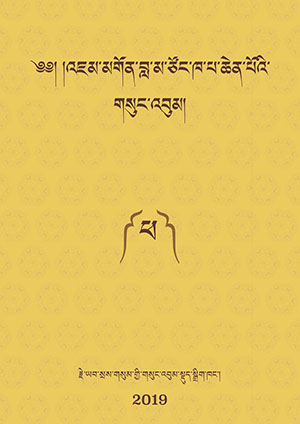 ༄༅། །འཇམ་མགོན་བླ་མ་ཙོང་ཁ་པ་ཆེན་པོའི་
གསུང་འབུམ།
ཕ
རྗེ་ཡབ་སྲས་གསུམ་གྱི་གསུང་འབུམ་སྡུད་སྒྲིག་ཁང་།
2019